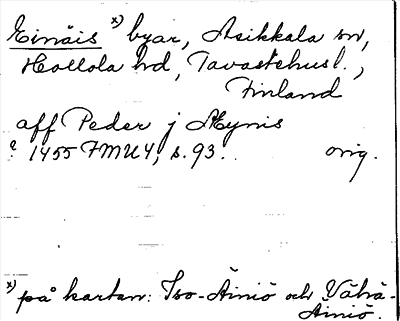 Einäis x) byar, Asikkala sn,
Hollola hd, Tavastehusl.,
Finland
aff Peder j Mynis
? 1455 FMU4, s. 93. orig.
x) på kartan: Iso-Äiniö och Vähä-
Äiniö.